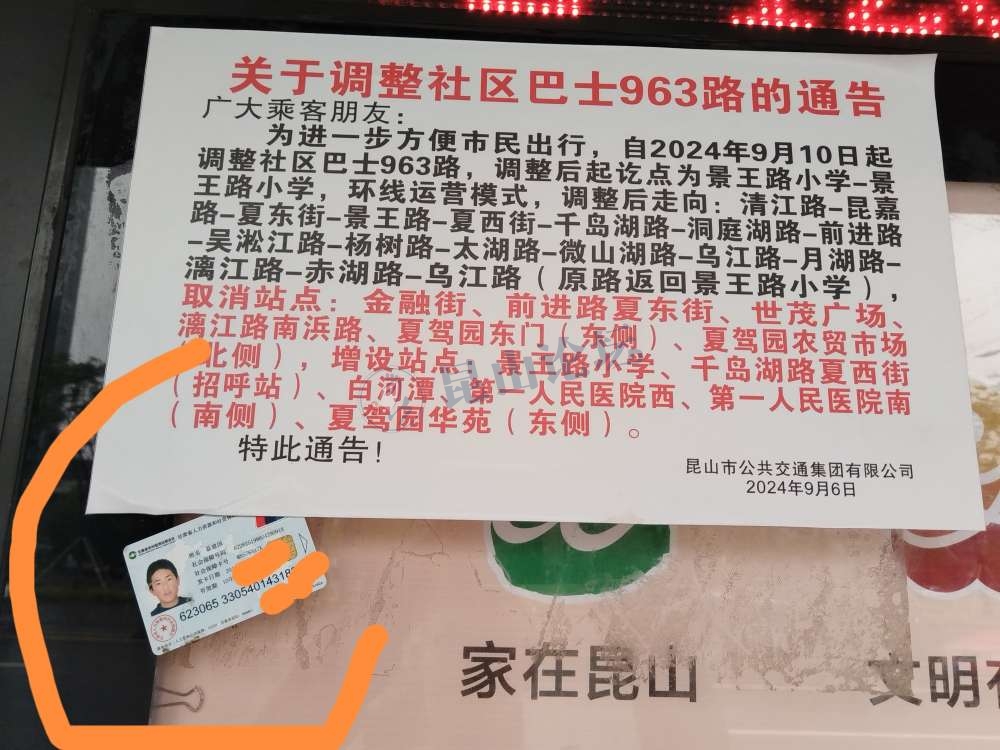 关于调整社区巴士963路的通告
广大乘客朋友：
为进一步方便市民出行，自2024年9月10日起
调整社区巴士963路，调整后起讫点为景王路小学-景
王路小学，环线运营模式，调整后走向：清江路-昆嘉
路-夏东街-景王路-夏西街-千岛湖路-洞庭湖路-前进路
-吴淞江路-杨树路-太湖路-微山湖路-乌江路-月湖路-
漓江路-赤湖路-乌江路（原路返回景王路小学），
取消站点：金融街、前进路夏东街、世茂广场、
漓江路南浜路、夏驾园东门（东侧）、夏驾园农贸市场
（北侧），增设站点：景王路小学、千岛湖路夏西街
（招呼站）、白河潭、第一人民医院西、第一人民医院南
（南侧）、夏驾园华苑（东侧）。
特此通告！
昆山市公共交通集团有限公司
2024年9月6日
昆山论坛
姓名
社会保障号码
社会保障卡号
发卡日期
家在昆山
文明